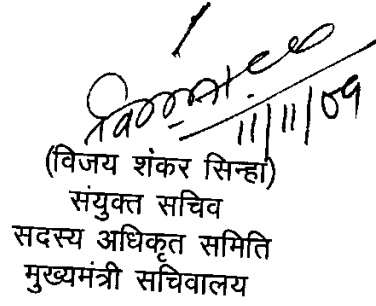 11/11/09
(विजय शंकर सिन्हा)
संयुक्त सचिव
सदस्य अधिकृत समिति
मुख्यमंत्री सचिवालय